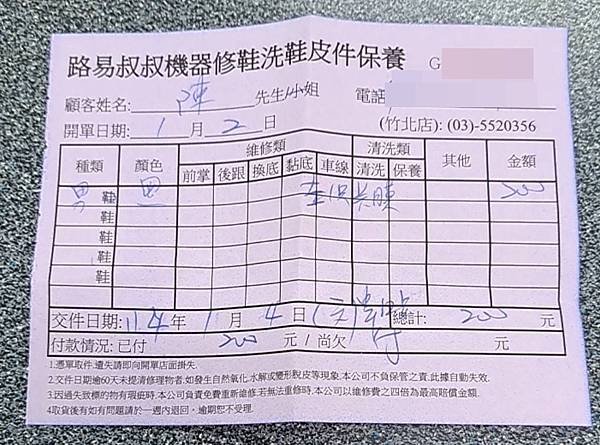 路易叔叔機器修鞋洗鞋皮件保養 G
顧客姓名: 陳 先生/小姐 電話
開單日期: 1 月 2 日 (竹北店): (03)-5520356
種類 顏色 維修類 清洗類 其他 金額
前掌 後跟 換底 黏底 車線 清洗 保養
男 鞋 黑 200
鞋
鞋
鞋
鞋
交件日期: 114 年 1 月 4 日 總計: 200 元
付款情況: 已付 200 元 / 尚欠 元
1.憑單取件,遺失請即向開單店面掛失.
2.交件日期逾60天未提清修理物者,如發生自然氧化.水解或變形脫皮等現象.本公司不負保管之責,此據自動失效.
3.因過失致標的物有瑕疵時.本公司負責免費重新維修.若無法重修時.本公司以維修費之四倍為最高賠償金額.
4.取貨後有如有問題請於一週內退回,逾期恕不受理.